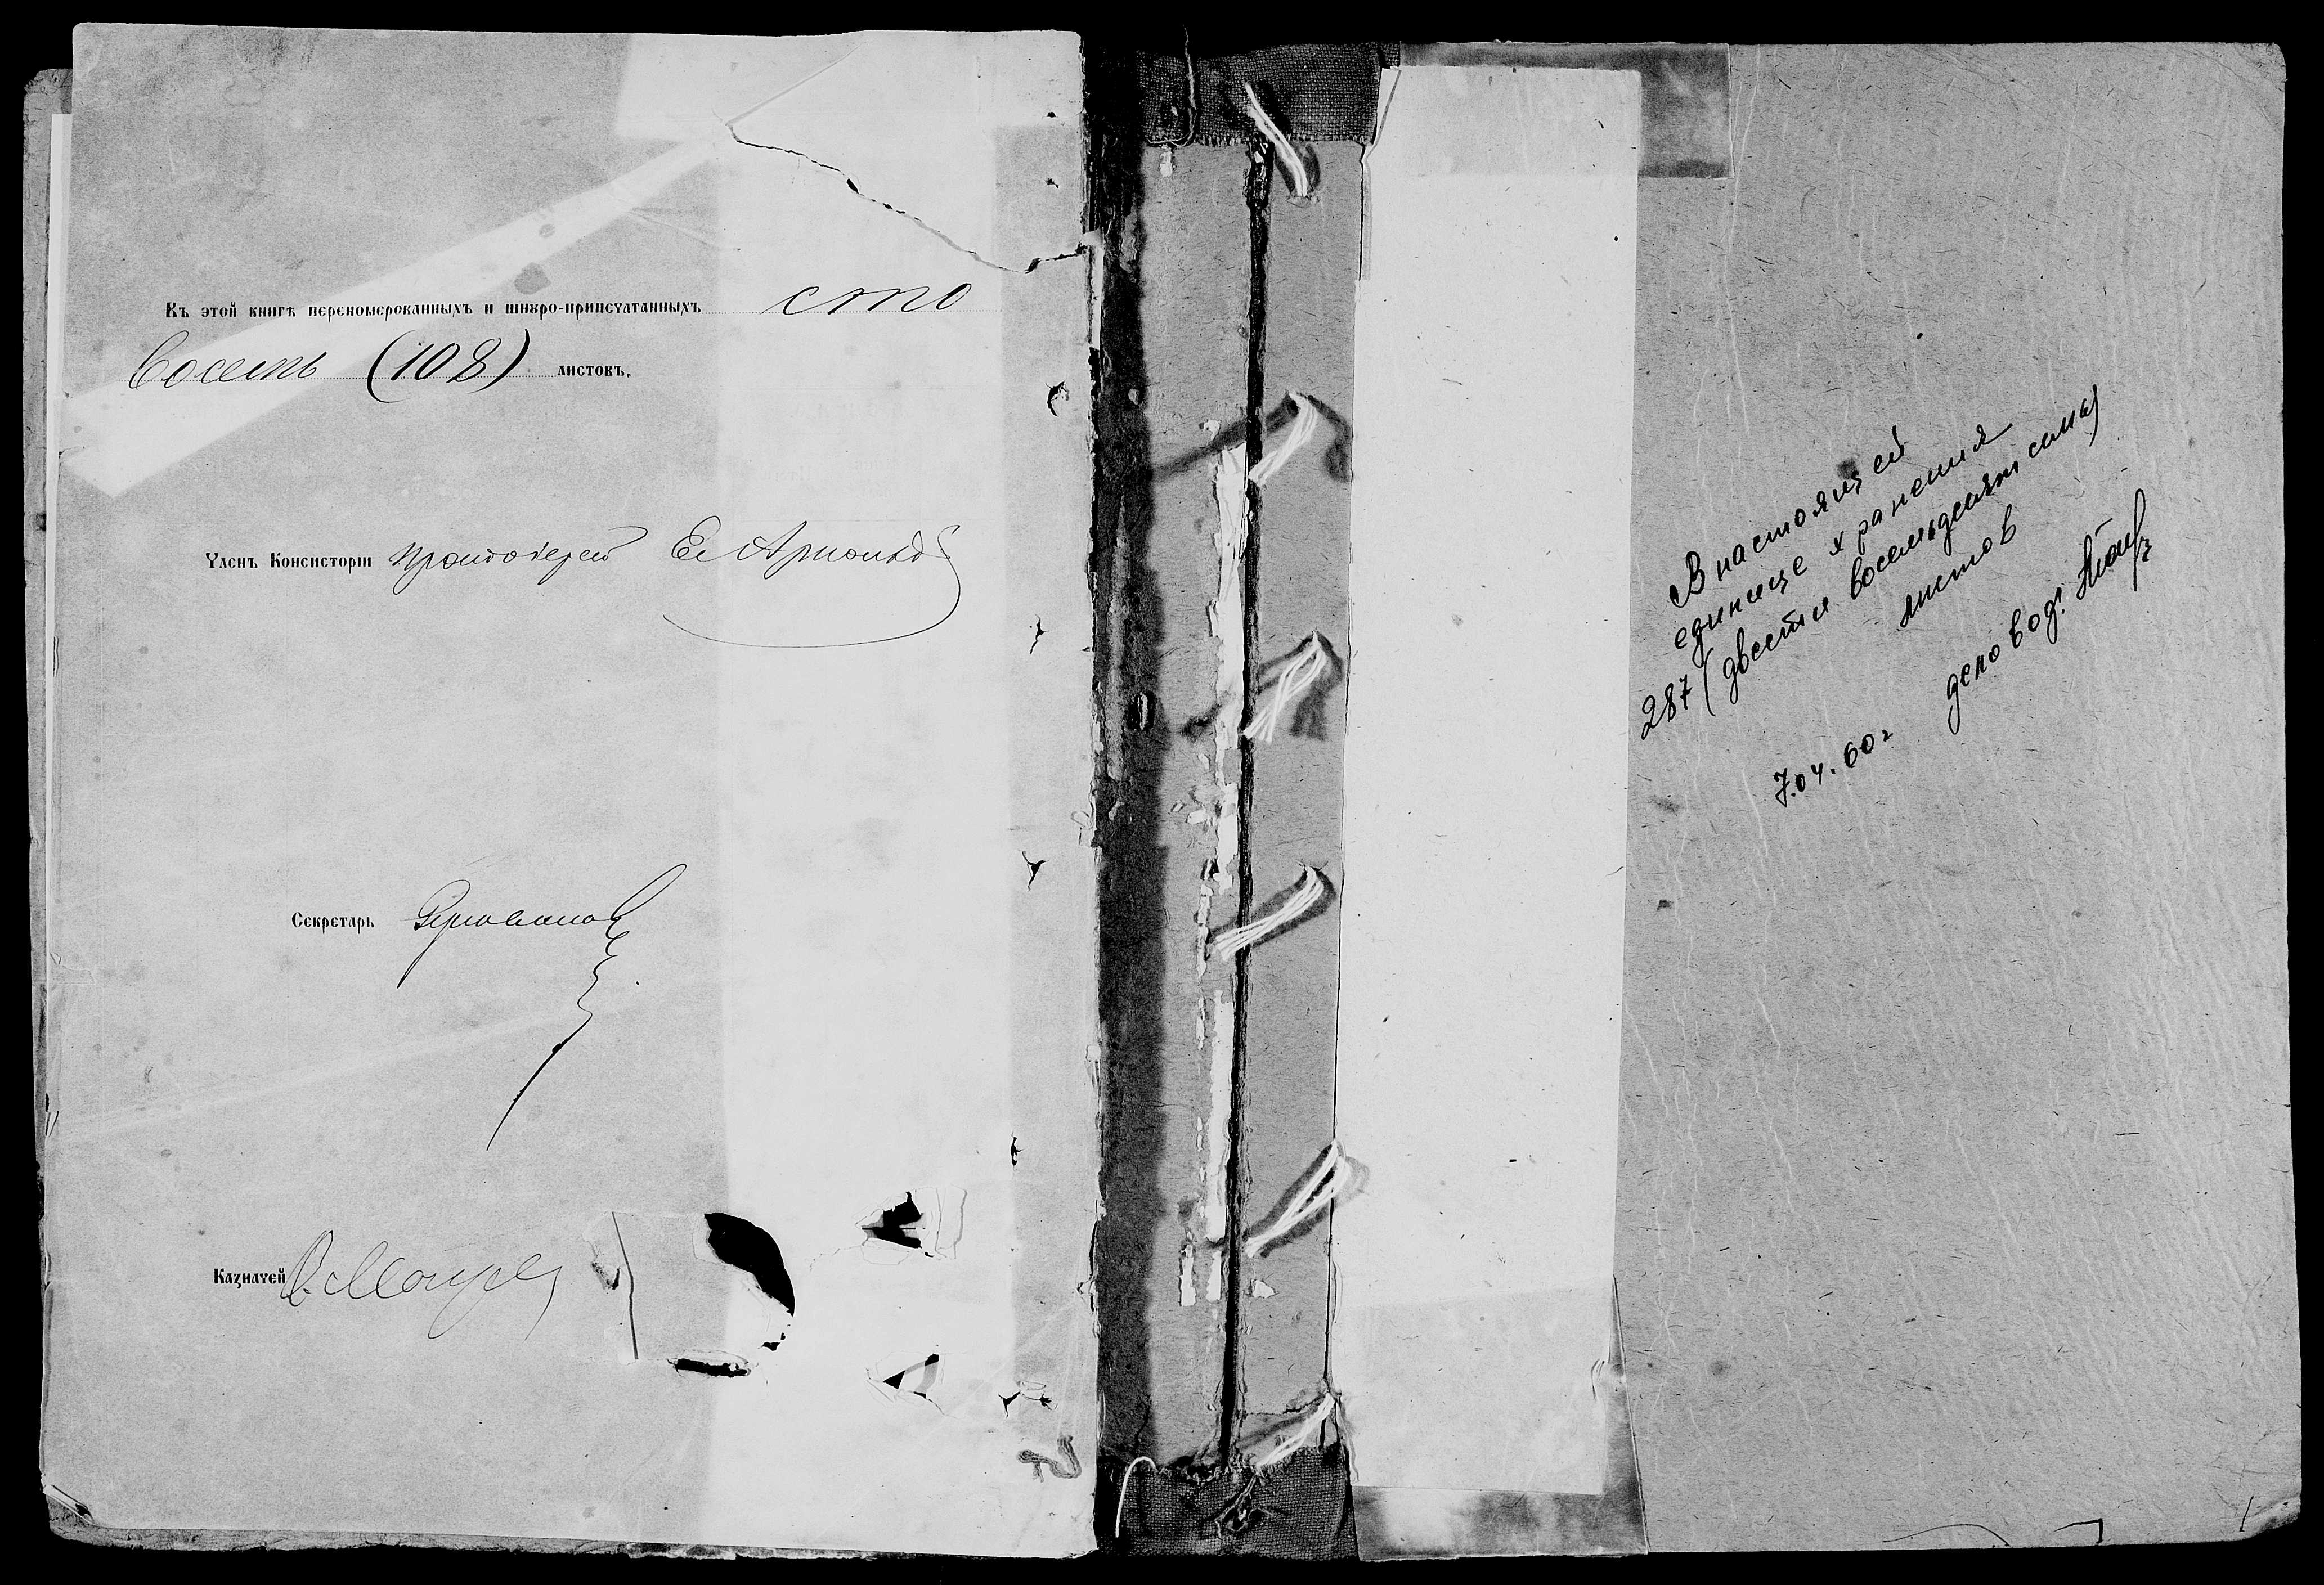 Въ этой книгѣ перенумерованныхъ и шнуро-припечатанныхъ сто
восемь (108) листовъ.
Членъ Консисторіи Протоіерей
Секретарь
Казначей
В настоящей
единице хранения
287 (двести восемьдесят семь)
листов
7.04.60 г деловод.